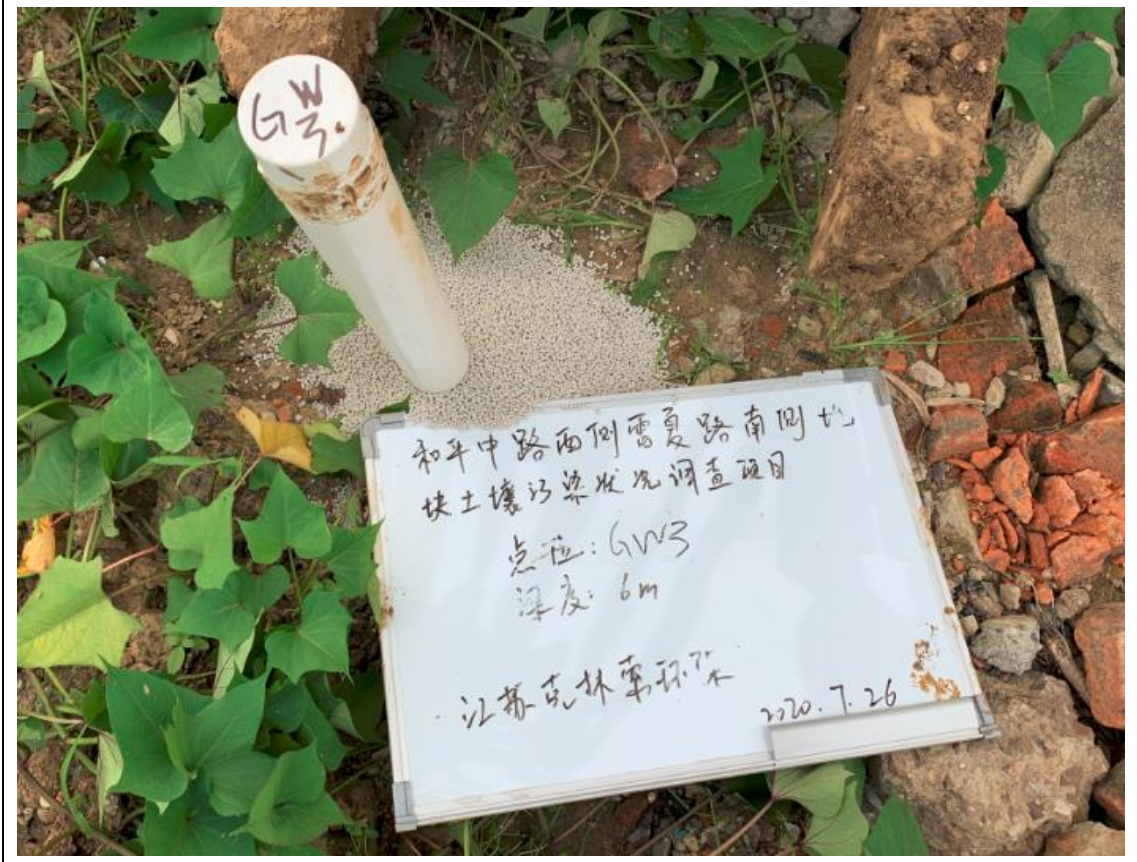 GW
3.
和平中路西侧雷夏路南侧地
块土壤污染状况调查项目
点位: GW3
深度: 6m
江苏克林
2020.7.26